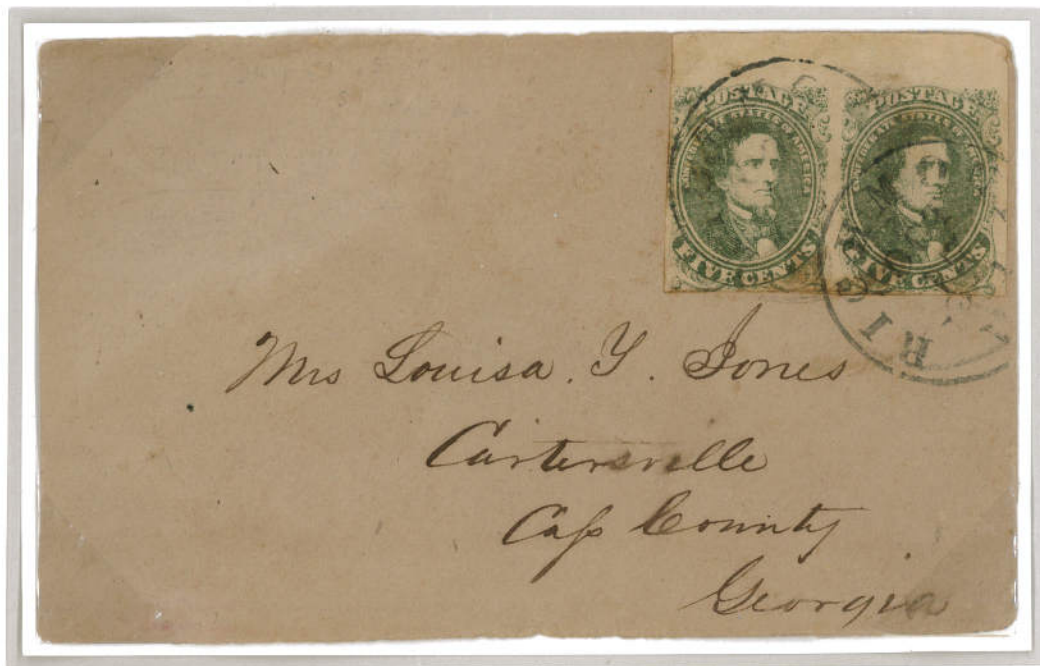 POSTAGE
CONFEDERATE STATES OF AMERICA
FIVE CENTS
POSTAGE
CONFEDERATE STATES OF AMERICA
FIVE CENTS
Mrs Louisa. Y. Jones
Cartersville
Cass County
Georgia